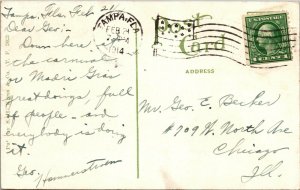 Tampa, Fla. Feb 21
Dear Geo.
Down here to
the carnival
or Madri Gras
great doings, full
of people - and
everybody is doing
it
Geo.
Hammerstrom
TAMPA, FLA.
FEB 21
1914
Post
Card
ADDRESS
Mr. Geo. E. Becker
#709 W. North Ave
Chicago
Ill.